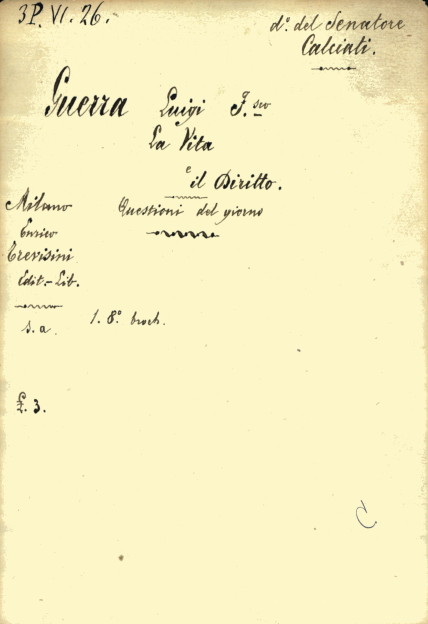 3P. VI. 26.
d°. del Senatore
Calciati.
Guerra Luigi F.sco
La Vita
e il Diritto.
Questioni del giorno
Milano
Enrico
Trevisini
Edit.- Lib.
s. a. 1. 8.° broch.
£. 3.
C